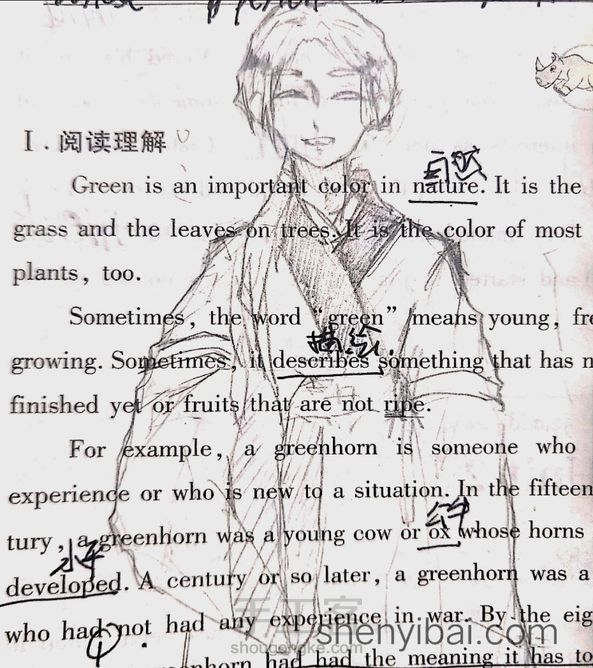 I. 阅读理解
自然
Green is an important color in nature. It is the
grass and the leaves on trees. It is the color of most
plants, too.
Sometimes, the word "green" means young, fre
描绘
growing. Sometimes, it describes something that has n
finished yet or fruits that are not ripe.
For example, a greenhorn is someone who
experience or who is new to a situation. In the fifteen
公牛
tury, a greenhorn was a young cow or ox whose horns
developed. A century or so later, a greenhorn was a
who had not had any experience in war. By the eig
手工客
shenyibai.com
shougongke.com
greenhorn had had the meaning it has to